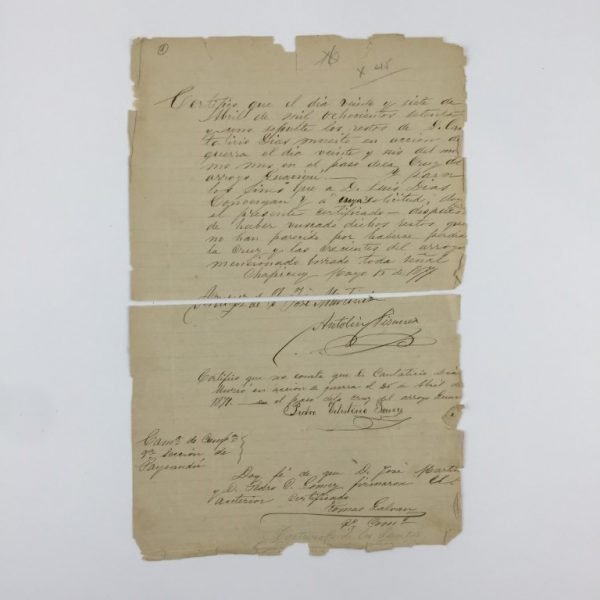 Certifico que el día veinte y siete de
Abril de mil ochocientos setenta
y uno sepulté los restos de D. Can
talicio Dias muerto en accion de
guerra el día veinte y seis del mis
mo mes en el paso de la Cruz del
arroyo Guaviyú. Y para
los fines que a D. Luis Dias
Convengan y á cuya solicitud, doy
el presente certificado - despues
de haber buscado dichos restos, que
no han parecido por haberse perdido
la Cruz y las crecientes del arroyo
mencionado borrado toda señal
Chapicuy Mayo 15 de 1877
Arruego de D. José Martinez
Antolin
Certifico que me consta que D. Cantalicio Dias
Murió en accion de guerra el 26 de Abril de
1871 en el paso de la Cruz del arroyo Guav
Pedro Celestino Gomez
Com.ª de Camp.ª
9ª Seccion de
Paysandú
Doy fé de que D. José Marti
y D. Pedro C. Gomez firmaron el
anterior certificado
Tomas Galvan